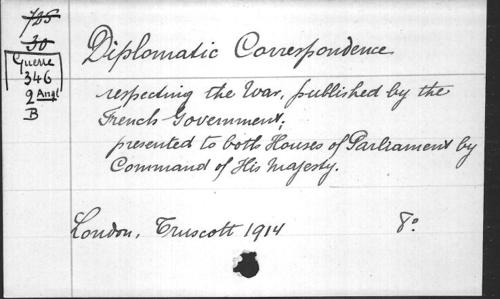 705
30
Guerre
346
2 Angl
B
Diplomatic Correspondence
respecting the War, published by the
French Government;
presented to both Houses of Parliament by
Command of His Majesty.
London, Truscott 1914 8°